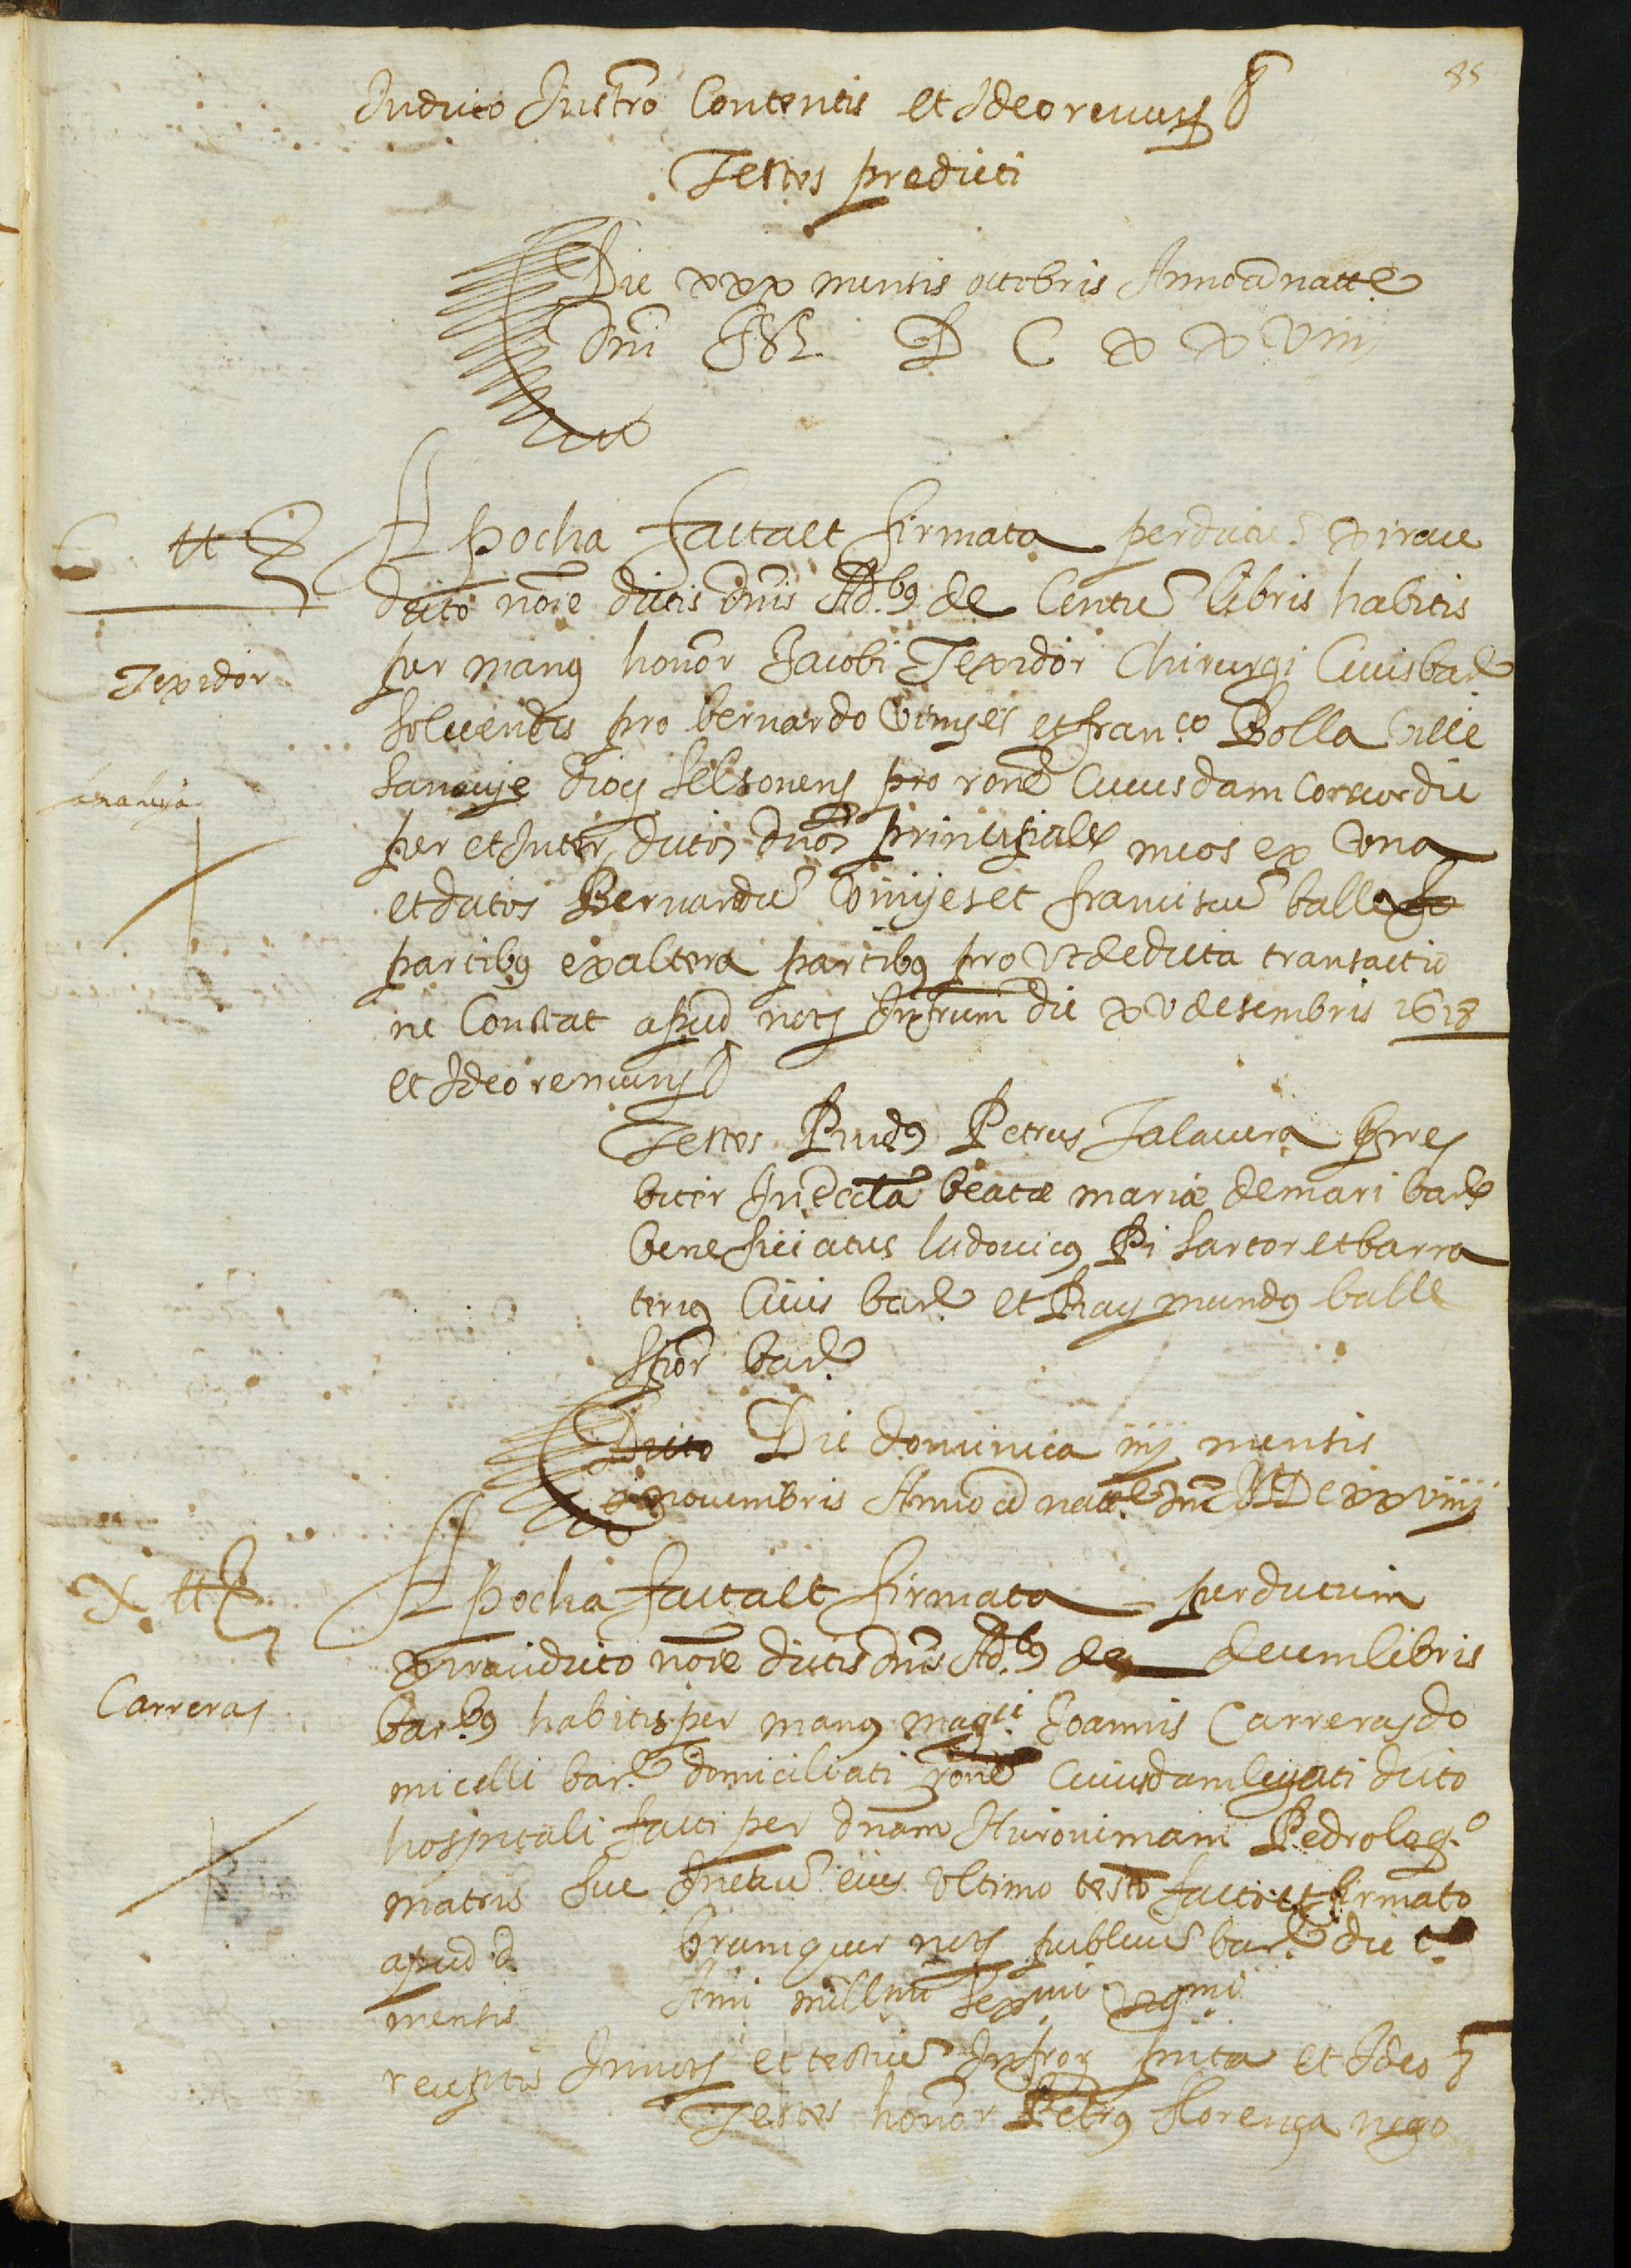 85
In dicto Instro Contentis et Ideo renuns
Testes predicti
Die xxx mensis octobris Anno a natte
Dni M D C x x viiij
C tt
Apocha facta et firmata per dictu Xirau
dicto noie dictis dnis Adbs de Centu libris habitis
Texidor
per manus honor Jacobi Texidor Chirurgi Civis bar
solvendis pro bernardo Vinyes et franco Bolla ville
Sanauja
Sanauje dioc selsonens pro rone cuiusdam concordie
per et Inter dictos dnos principales meos ex una
et dictos Bernardu Vinyes et franciscu balle
partibus ex altera partibus prout de dicta transactio
ne Constat apud nots Infrum die xv desembris 1618
et Ideo renuns
Testes Rndus Petrus Talavera pres
biter In eccla beatæ mariæ de mari bar
beneficiatus ludovicus Pi sartor et barra
terius Civis bar et Raymundus balle
scior bar
Dicto Die dominica iiij mensis
novembris Anno a natte Dni MDCxxviiij
X tt
Apocha facta et firmata per dictum
Xirau dicto noie dictis dnis Adbs de decem libris
Carreras
barbs habitis per manus magci Joannis Carreras do
micelli bar domiciliati rone cuiusdam legati dicto
hospitali facti per dnam Hieronimam Pedrolo qo
matrem sue In et cu eius ultimo testo facto et firmato
apud d. Bruniquer nots publicu bar die
mensis Anni millmi sexmi vigmi
receptis In nots et testiu Infror pnta et Ideo
Testes honor Petrus florença nego